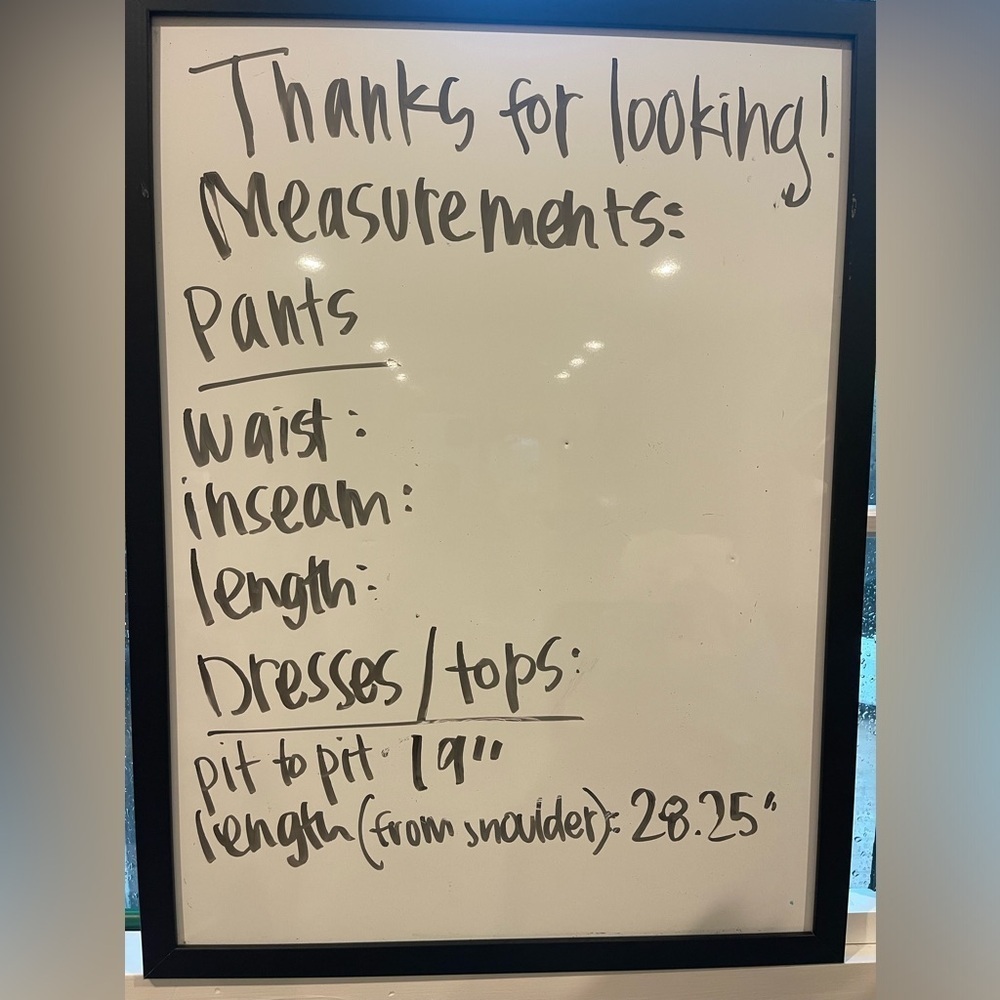 Thanks for looking!
Measurements:
Pants
waist:
inseam:
length:
Dresses/tops:
pit to pit: 19"
length (from shoulder): 28.25"